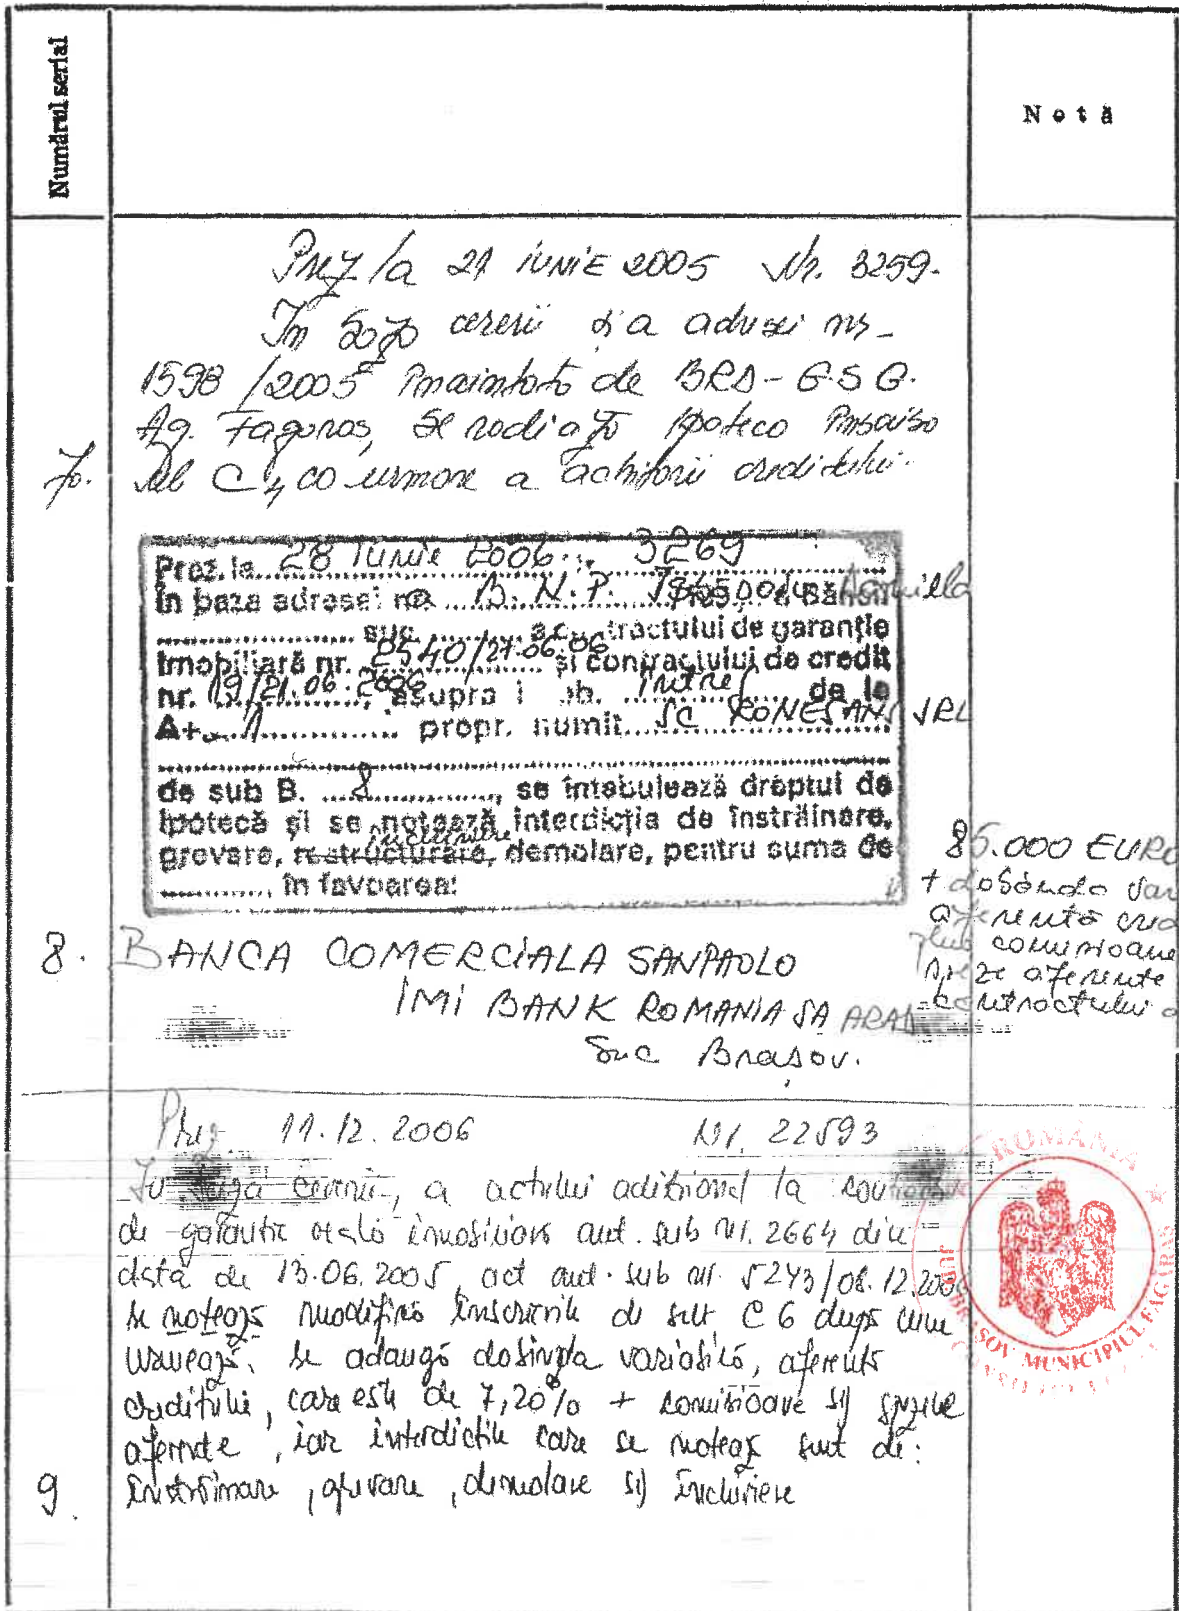 Numărul serial
Notă
Prez la 21 iunie 2005 Nr. 3259.
În baza cererii și a adresei nr
1598/2005 înaintată de BRD-GSG.
Ag. Făgăraș, se radiază ipoteca înscrisă
7. sub C4, ca urmare a achitării creditului.
Prez. la 28 Iunie 2006 3269
În baza adresei nr. B.N.P. Daniela
suc. a contractului de garanție
imobiliară nr. 2540/27.06.06 și contractului de credit
nr. 19/21.06.2006, asupra imob. întreg de le
A+ 1 propr. numit SC RONESANS SRL
de sub B. 8, se întabulează dreptul de
ipotecă și se notează interdicția de înstrăinare,
închiriere
grevare, restructurare, demolare, pentru suma de
, în favoarea:
85.000 EURO
+ dobânda var
aferentă cre
plus comisioane
speze aferente
contractului
8. BANCA COMERCIALA SANPAOLO
IMI BANK ROMANIA SA ARAD
Suc Brasov.
Prez 11.12.2006 Nr. 22593
În baza cererii, a actului adițional la
de garanție reală imobiliară aut. sub nr. 2664 din
data de 13.06.2005, act aut. sub nr. 5243/08.12.2006
se notează modifică înscrierile de sub C6 după cum
urmează: se adaugă dobînda variabilă, aferentă
creditului, care este de 7,20% + comisioane și spezele
aferente, iar interdicțiile care se notează sunt de:
9. înstrăinare, grevare, demolare și închiriere
ROMÂNIA
BRAȘOV MUNICIPIUL FĂGĂRAȘ